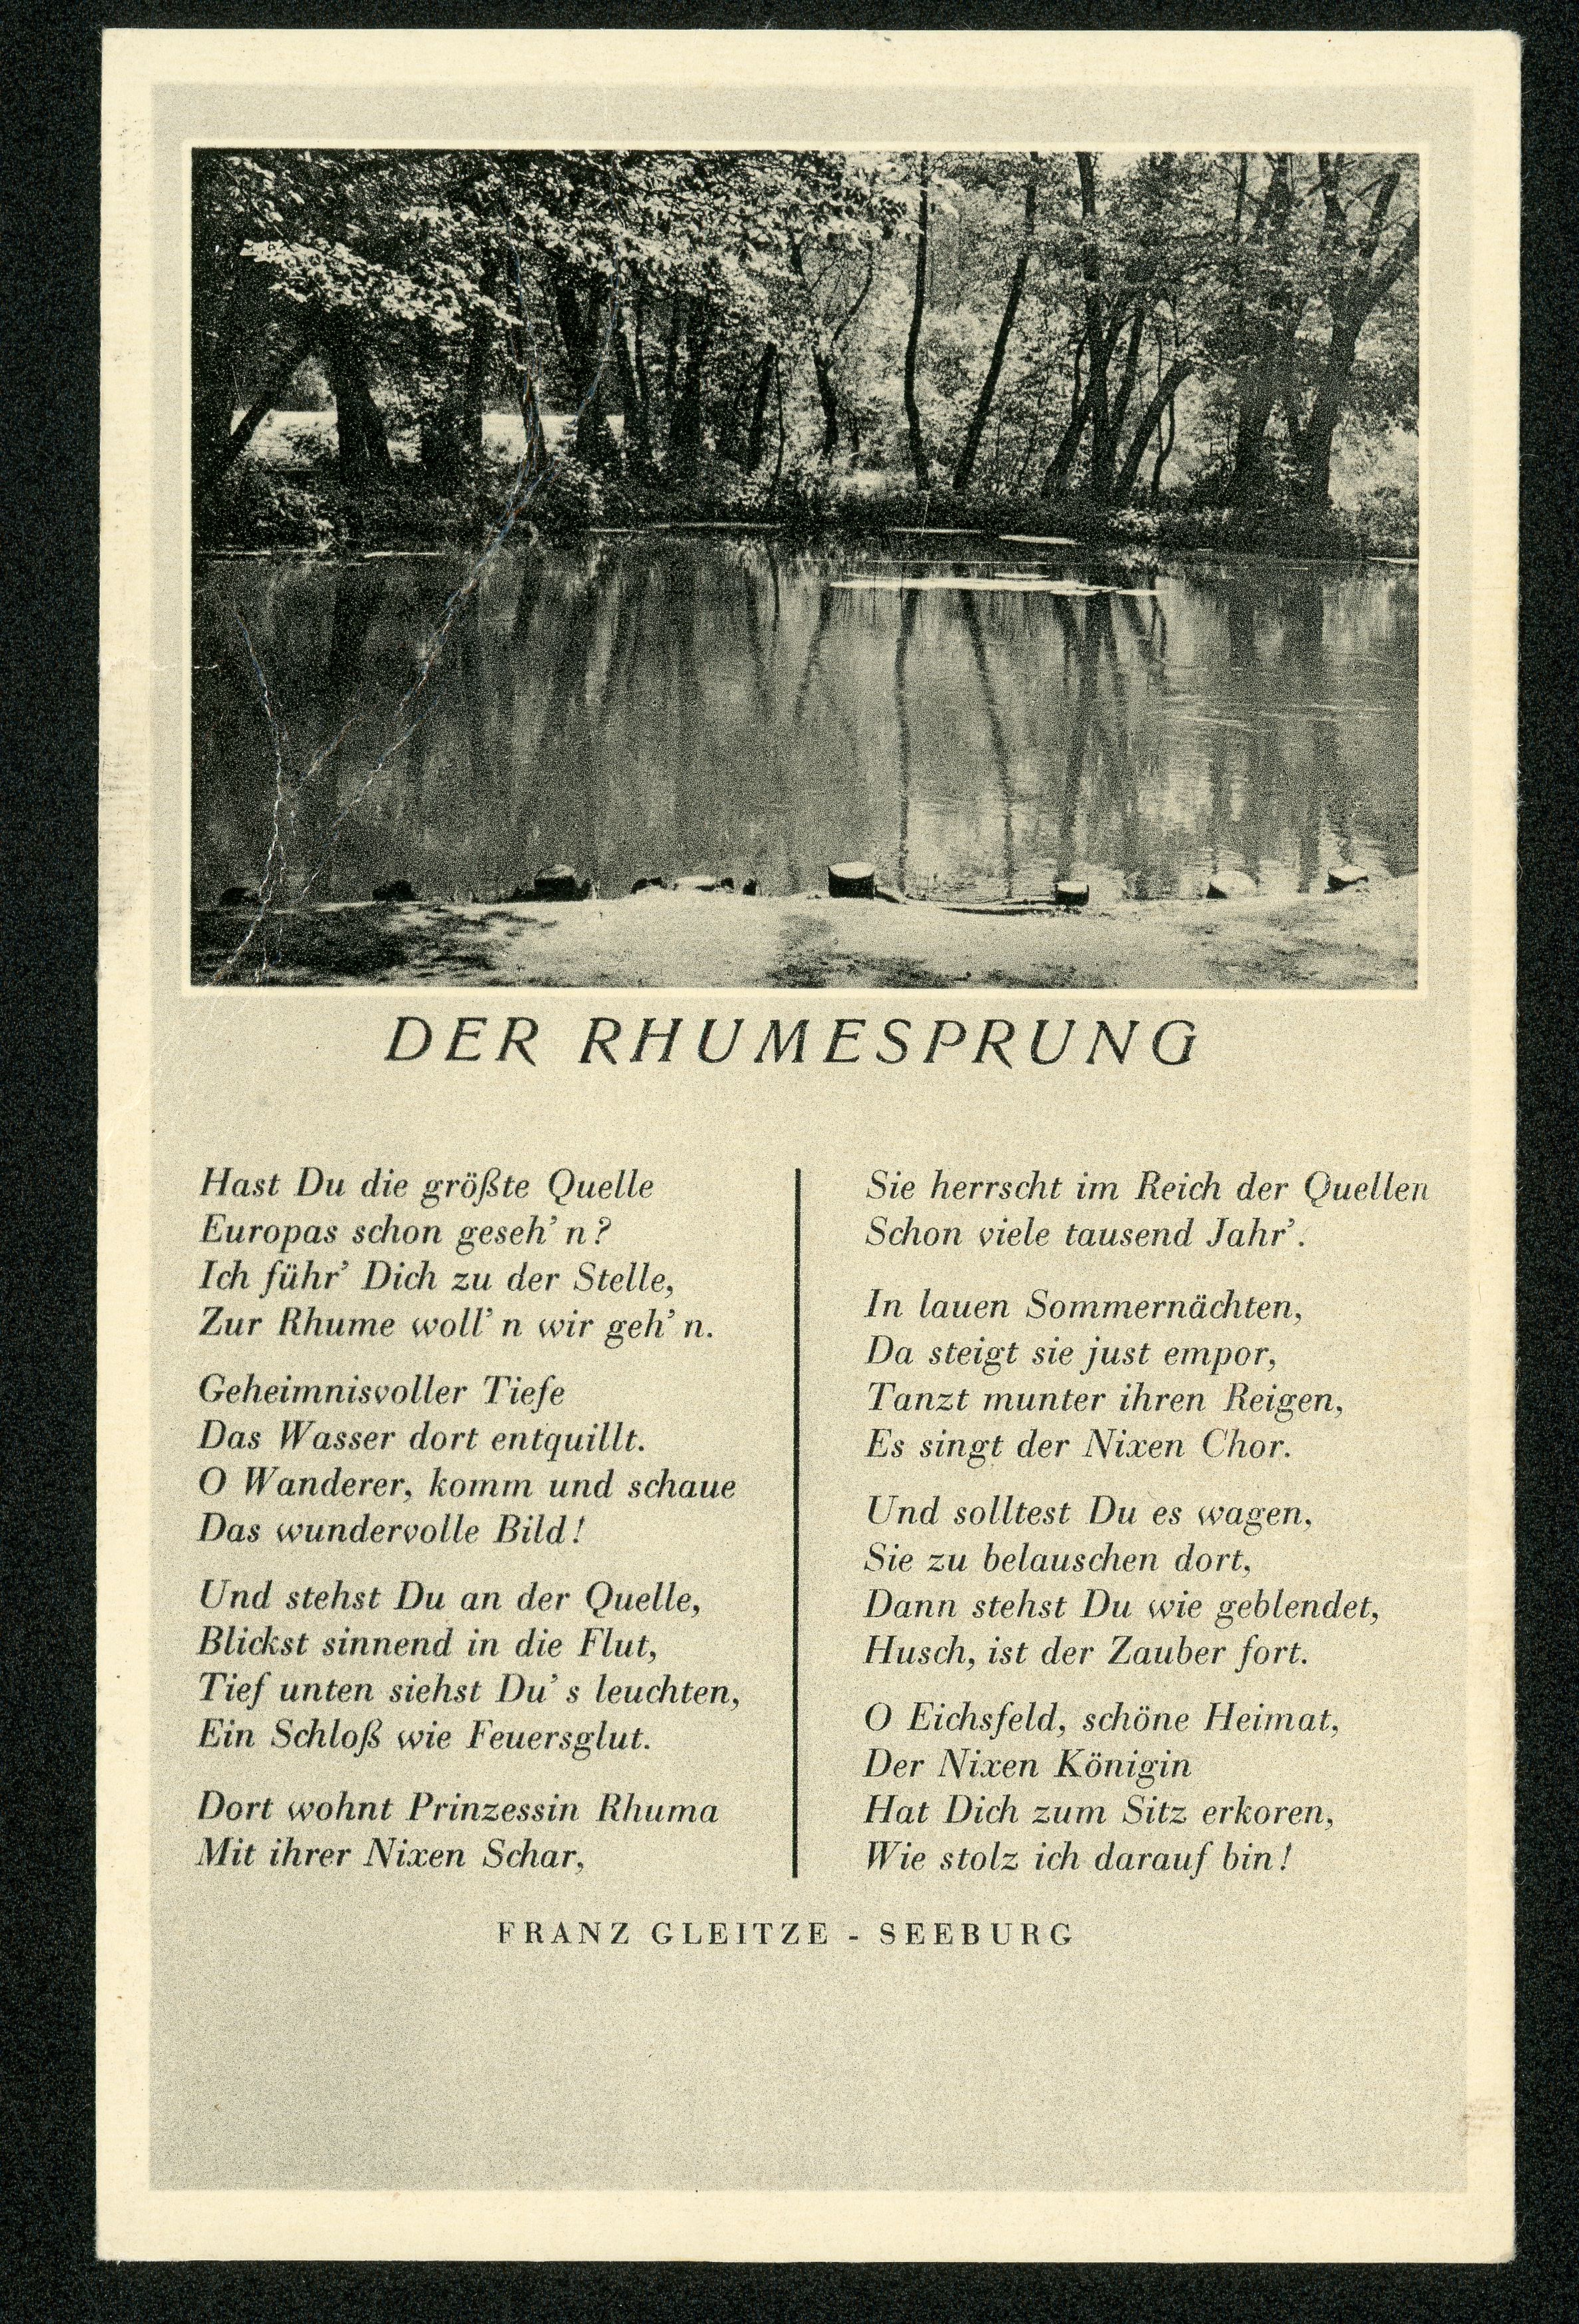 DER RHUMESPRUNG
Hast Du die größte Quelle
Europas schon geseh' n?
Ich führ' Dich zu der Stelle,
Zur Rhume woll' n wir geh' n.
Geheimnisvoller Tiefe
Das Wasser dort entquillt.
O Wanderer, komm und schaue
Das wundervolle Bild!
Und stehst Du an der Quelle,
Blickst sinnend in die Flut,
Tief unten siehst Du' s leuchten,
Ein Schloß wie Feuersglut.
Dort wohnt Prinzessin Rhuma
Mit ihrer Nixen Schar,
Sie herrscht im Reich der Quellen
Schon viele tausend Jahr'.
In lauen Sommernächten,
Da steigt sie just empor,
Tanzt munter ihren Reigen,
Es singt der Nixen Chor.
Und solltest Du es wagen,
Sie zu belauschen dort,
Dann stehst Du wie geblendet,
Husch, ist der Zauber fort.
O Eichsfeld, schöne Heimat,
Der Nixen Königin
Hat Dich zum Sitz erkoren,
Wie stolz ich darauf bin!
FRANZ GLEITZE - SEEBURG